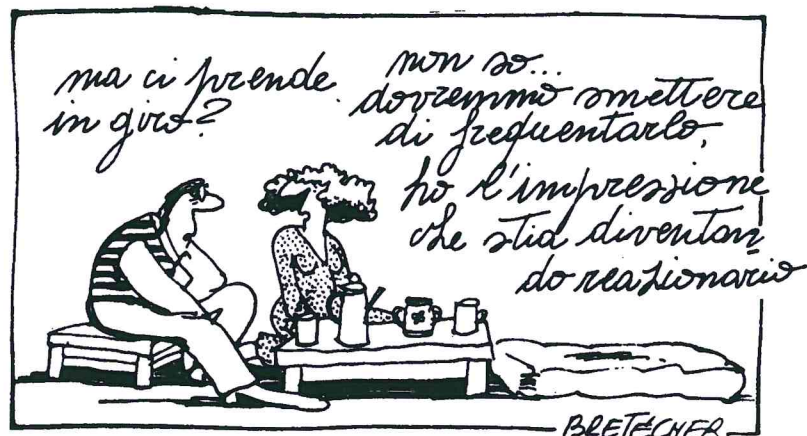 ma ci prende
in giro?
non so...
dovremmo smettere
di frequentarlo,
ho l'impressione
che stia diventan
do reazionario
BRETÉCHER